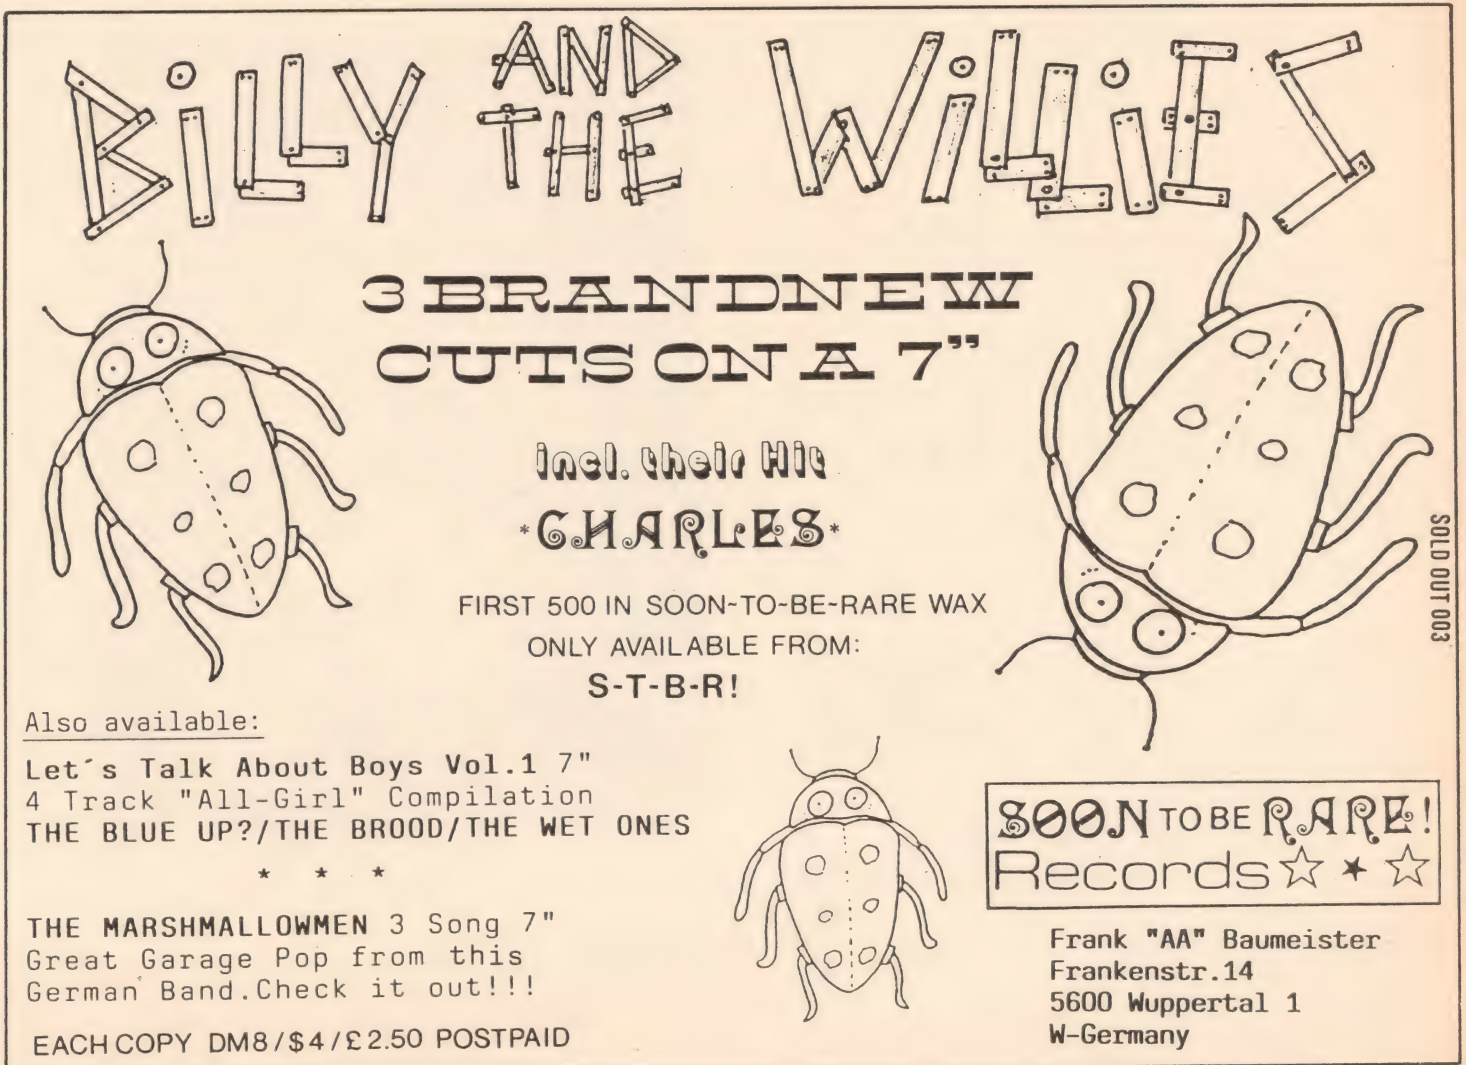 BiLLY AND THE WiLLiES
3 BRANDNEW
CUTS ON A 7”
incl. their Hit
*CHARLES*
FIRST 500 IN SOON-TO-BE-RARE WAX
ONLY AVAILABLE FROM:
S-T-B-R!
SOLD OUT 003
Also available:
Let´s Talk About Boys Vol.1 7"
4 Track "All-Girl" Compilation
THE BLUE UP?/THE BROOD/THE WET ONES
* * *
THE MARSHMALLOWMEN 3 Song 7"
Great Garage Pop from this
German Band.Check it out!!!
EACH COPY DM8/$4/£2.50 POSTPAID
SOON TO BE RARE!
Records
Frank "AA" Baumeister
Frankenstr.14
5600 Wuppertal 1
W-Germany